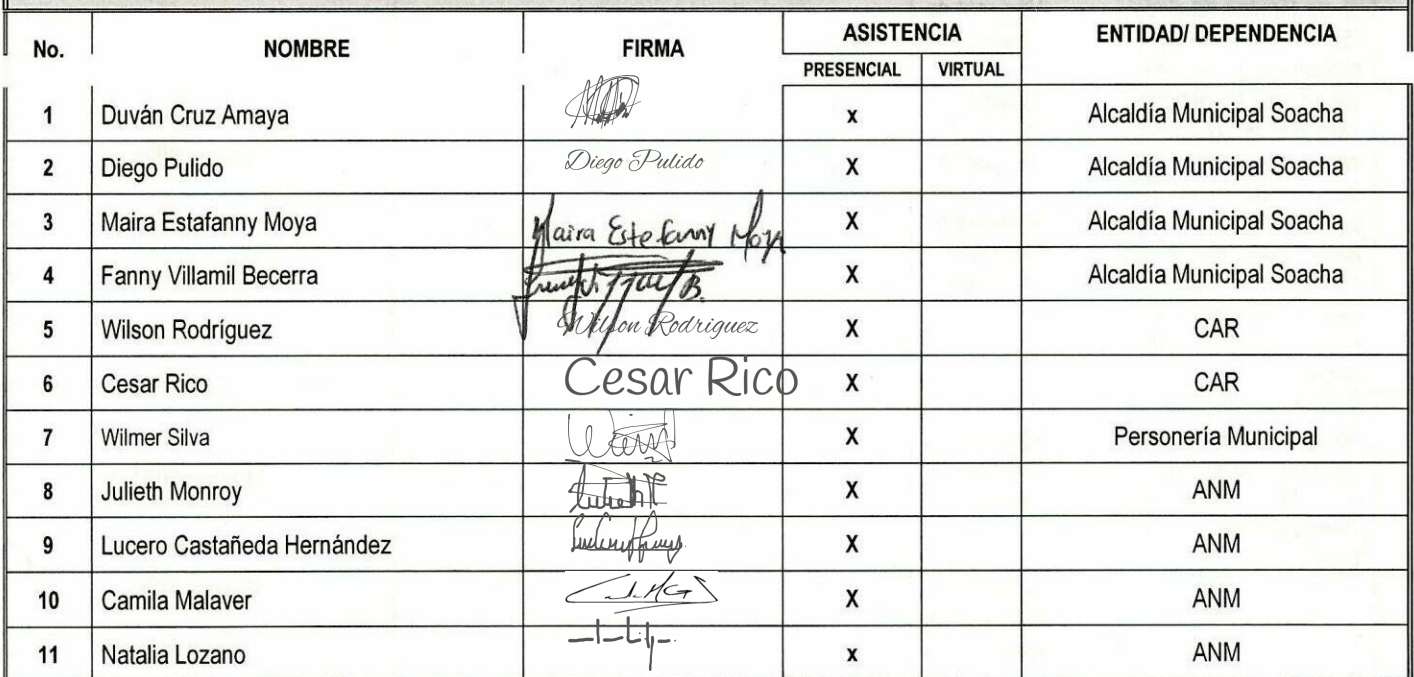 No. NOMBRE FIRMA ASISTENCIA ENTIDAD/ DEPENDENCIA
PRESENCIAL VIRTUAL
1 Duván Cruz Amaya x Alcaldía Municipal Soacha
2 Diego Pulido Diego Pulido X Alcaldía Municipal Soacha
3 Maira Estafanny Moya Maira Estefanny Moya X Alcaldía Municipal Soacha
4 Fanny Villamil Becerra X Alcaldía Municipal Soacha
5 Wilson Rodríguez Wilson Rodriguez X CAR
6 Cesar Rico Cesar Rico X CAR
7 Wilmer Silva X Personería Municipal
8 Julieth Monroy X ANM
9 Lucero Castañeda Hernández X ANM
10 Camila Malaver X ANM
11 Natalia Lozano x ANM